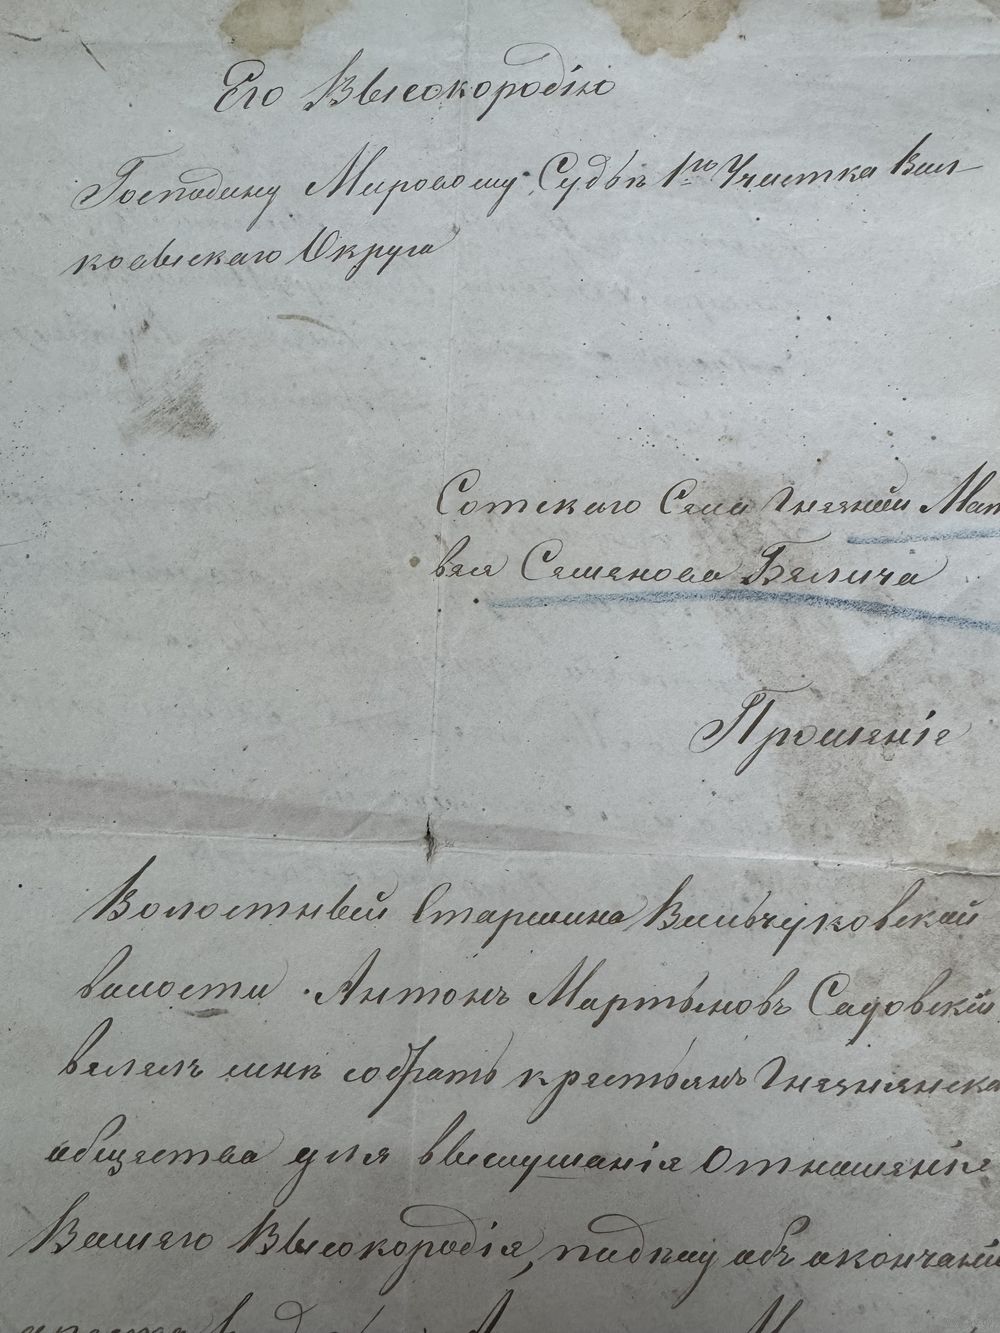 Его Высокородію
Господину Мировому Судьѣ 1го Участка Вил-
ковыскаго Округа
Сотскаго Села Гнезной Мат
вея Семенова Белича
Прошеніе
Волостный Старшина Вильчуковской
волости Антонъ Мартыновъ Садовскій
велелъ мнѣ собрать крестьянъ Гнезнянска
общества для выслушанія отношенія
Вашего Высокородія, объ окончаній